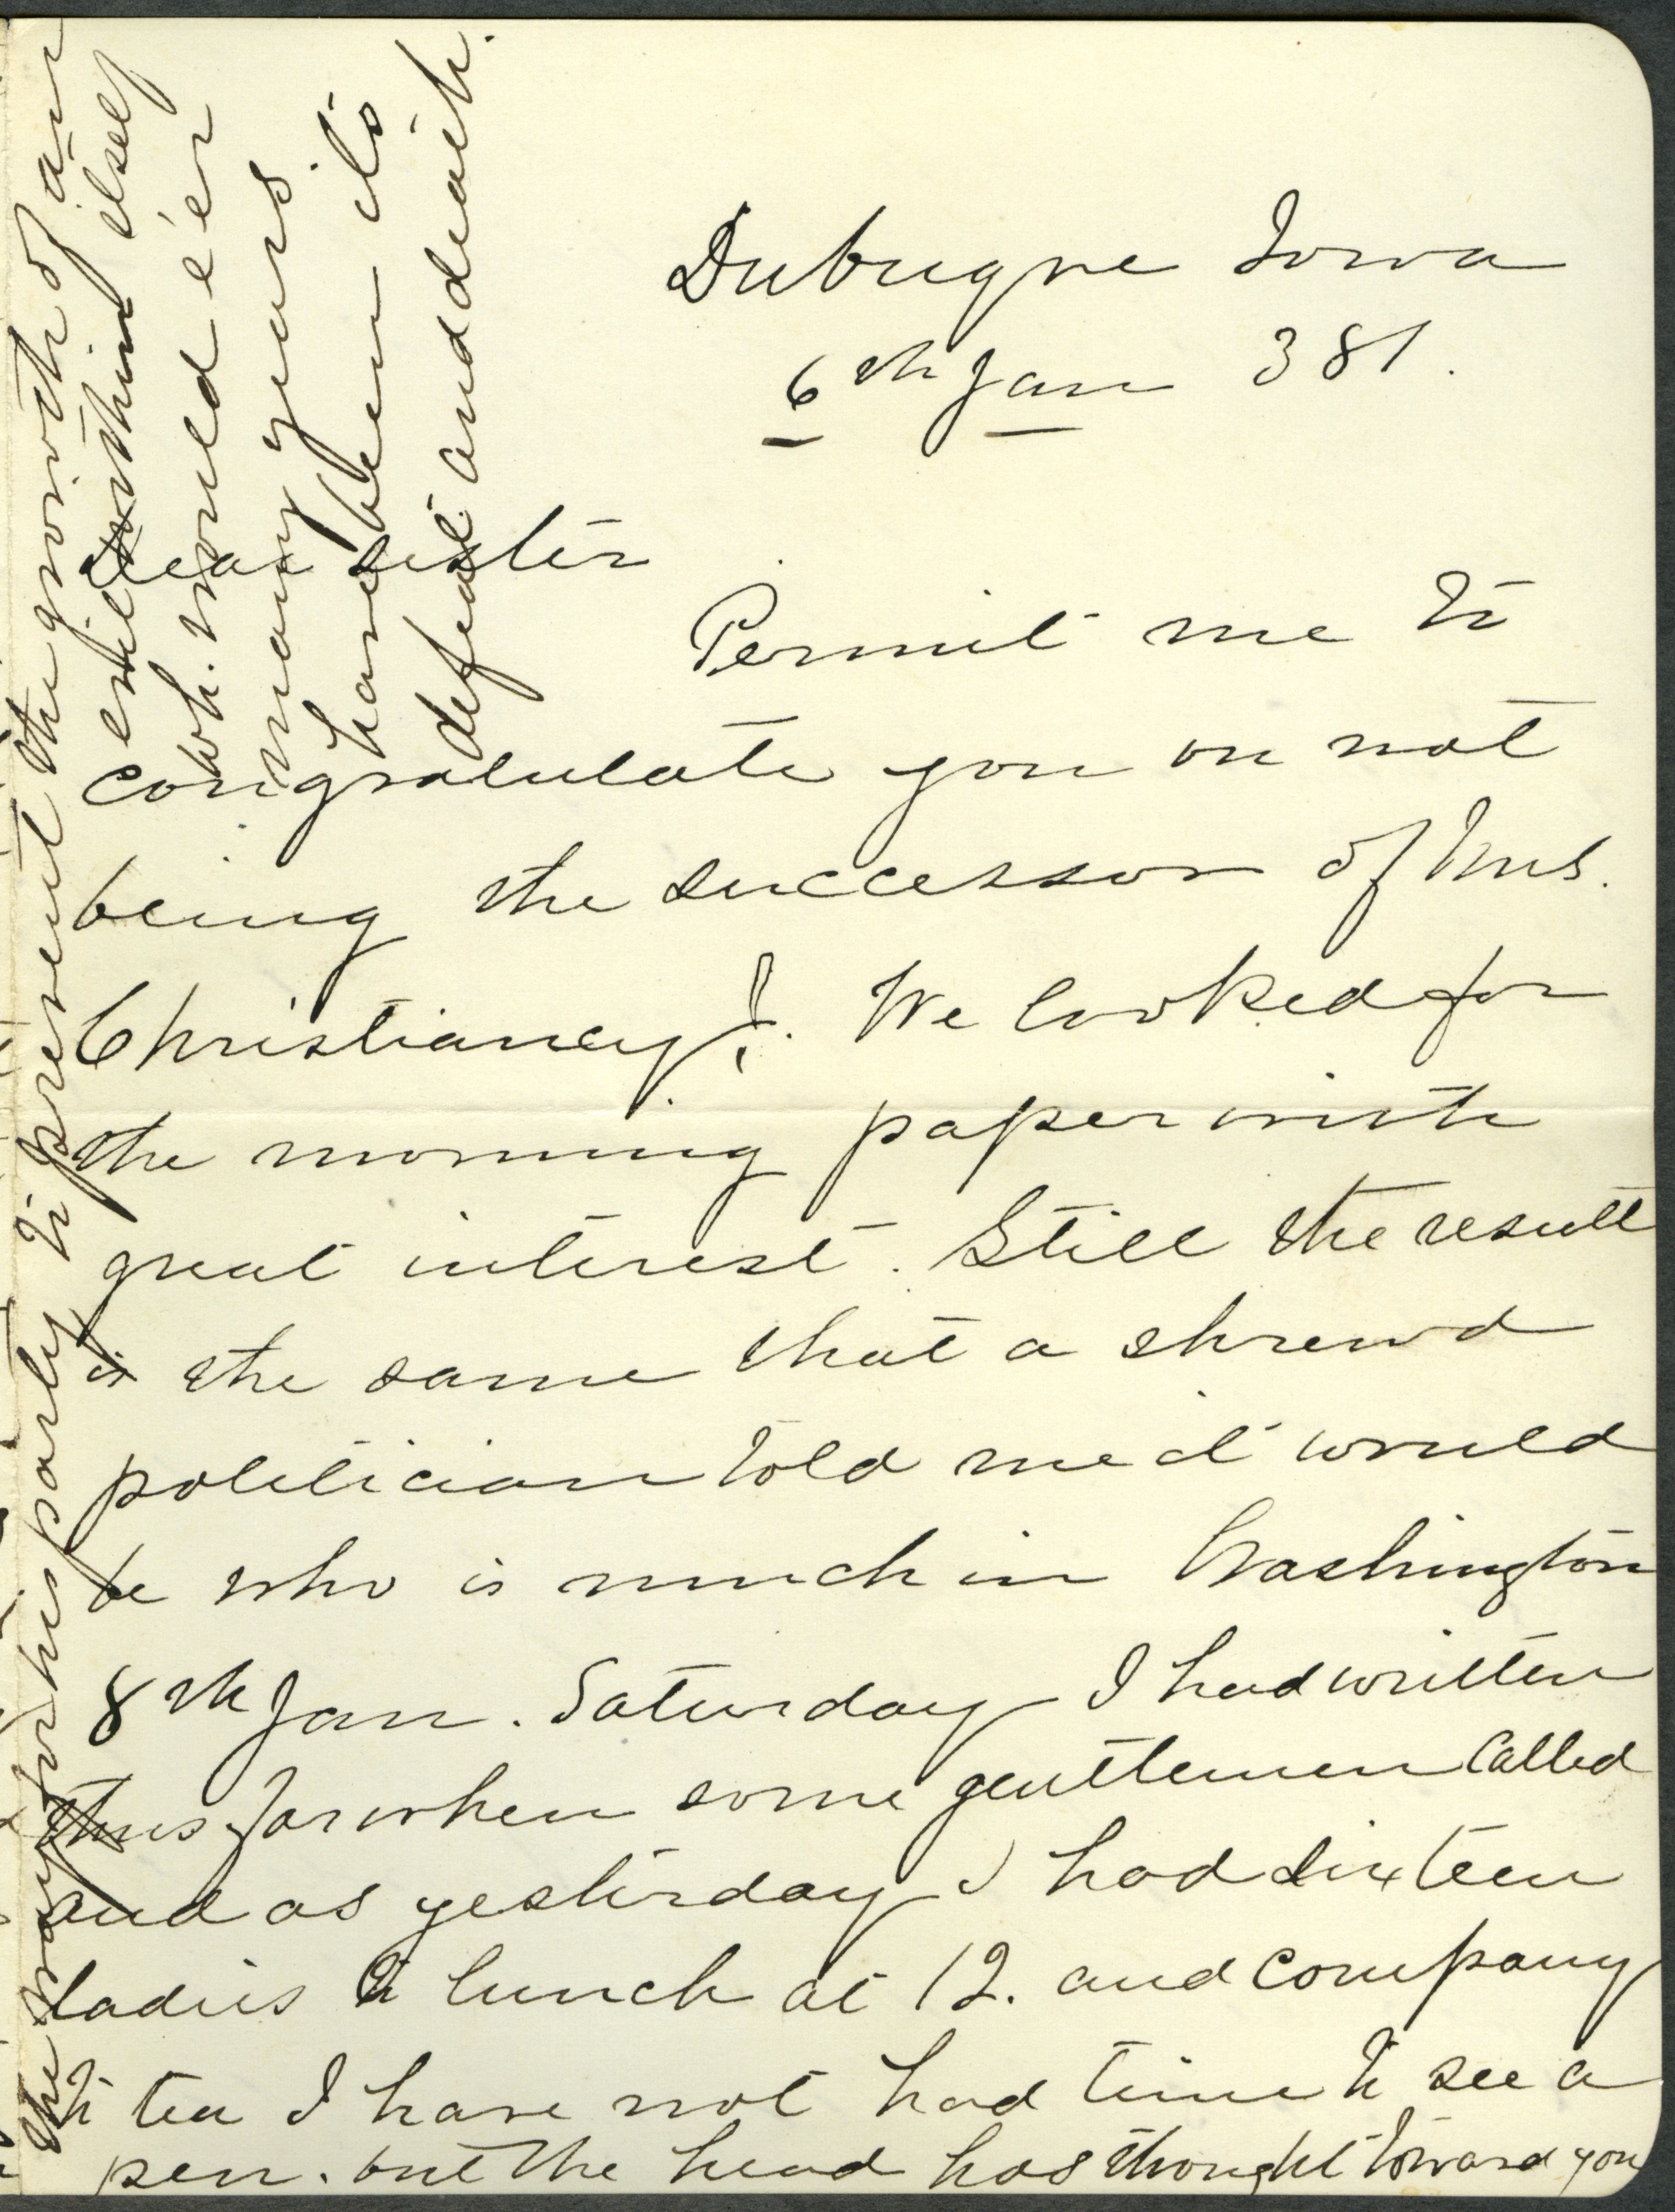 Dubuque Iowa
6th Jan 381.
Dear sister
Permit me to
congratulate you on not
being the successor of Mrs.
Christiancy! We looked for
the morning paper with
great interest. Still the result
is the same that a shrewd
politician told me it would
be who is much in Washington
8th Jan. Saturday I had written
thus far when some gentlemen called
and as yesterday I had sixteen
ladies to lunch at 12. and company
to tea I have not had time to see a
pen. but the head has thought toward you
the way for his party to prevent the growth of an
enemy within itself
wh. would e'er
many years
have been its
defeat and death.